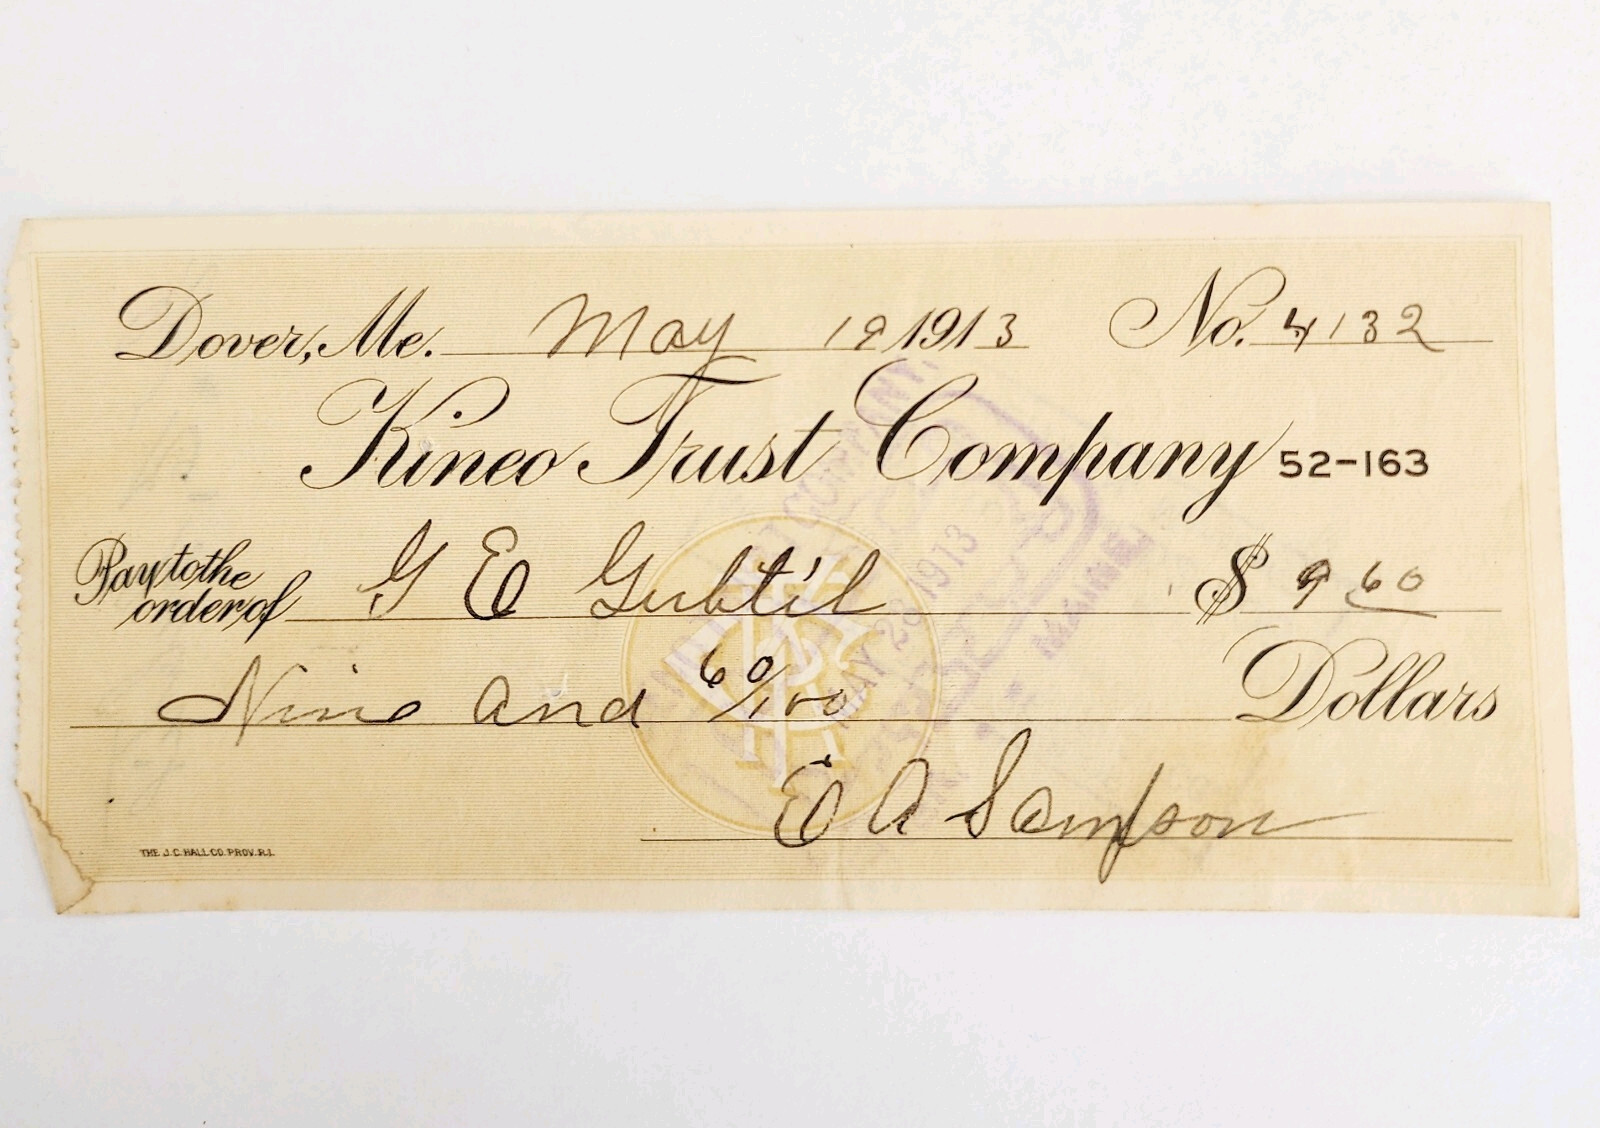 Dover, Me. May 19 1913 No. 4132
Kineo Trust Company 52-163
Pay to the order of G E Gubtil $ 9 60
Nine and 60/100 Dollars
E A Sampson
THE J.C. HALL CO. PROV. R.I.
TRUST COMPANY,
MAY 23 1913
MAINE.